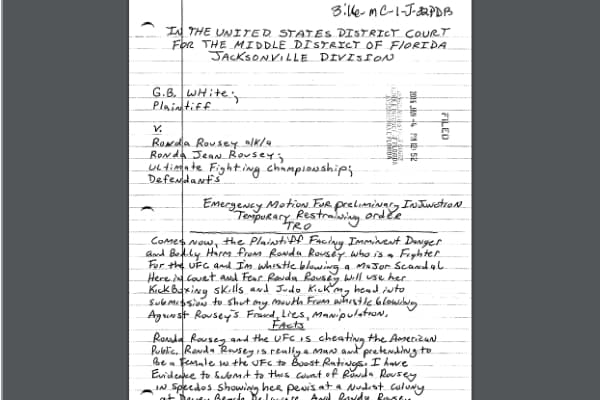 3:16-mc-1-J-32PDB
IN THE UNITED STATES DISTRICT COURT
FOR THE MIDDLE DISTRICT OF FLORIDA
JACKSONVILLE DIVISION
G.B. White;
Plaintiff
V.
Ronda Rousey a/k/a
Ronda Jean Rousey;
Ultimate Fighting Championship;
Defendants
FILED
2016 JAN -4 PM 12:52
Emergency Motion For preliminary Injunction
Temporary Restraining order
TRO
Comes Now, the Plaintiff Facing Imminent Danger
and Bodily Harm from Ronda Rousey who is a Fighter
For the UFC and I'm whistle blowing a Major Scandal
Here in Court and Fear Ronda Rousey will use her
Kick Boxing skills and Judo Kick my head into
submission to shut my mouth From whistle blowing
Against Rousey's Fraud, Lies, Manipulation.
Facts
Ronda Rousey and the UFC is cheating the American
Public. Ronda Rousey is really a man and pretending to
Be a female in the UFC to Boost Ratings. I have
Evidence to submit to this court of Ronda Rousey
in speedos showing her penis at a Nudist Colony
at Beach Delaware. And Ronda Rousey